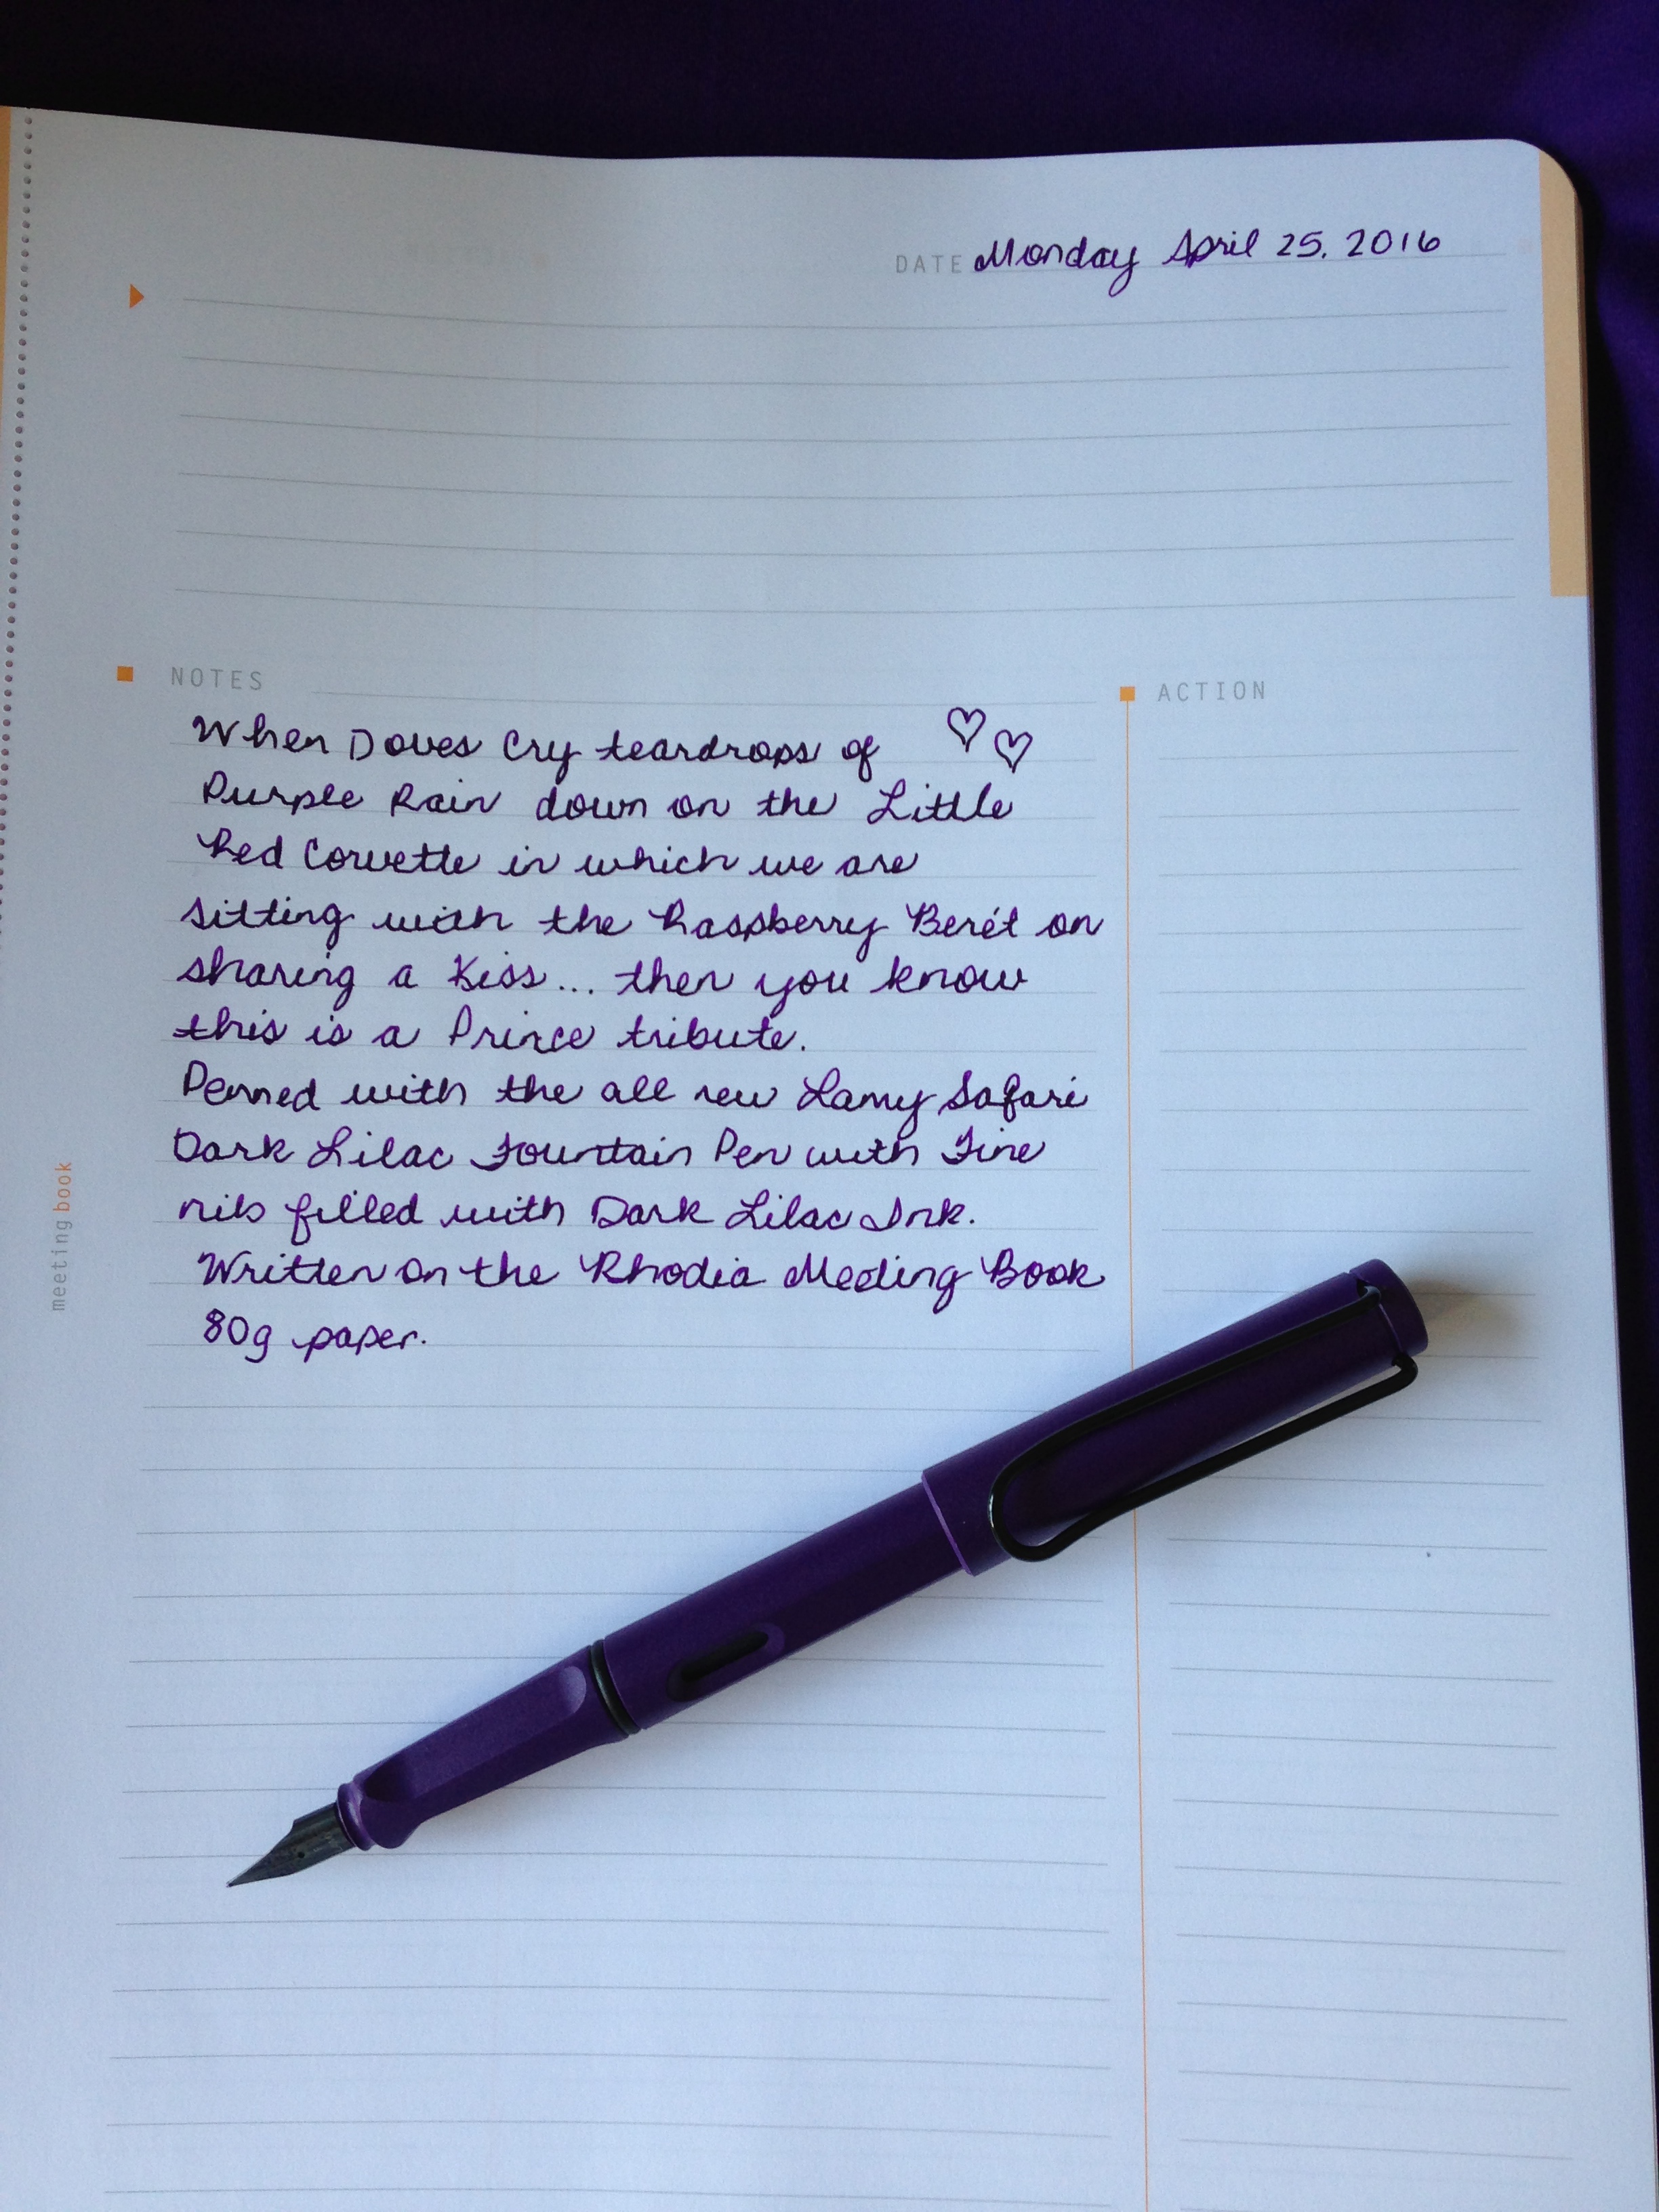 DATE Monday April 25, 2016
NOTES
ACTION
When Doves Cry teardrops of
Purple Rain down on the Little
Red Corvette in which we are
sitting with the Raspberry Berét on
sharing a Kiss... then you know
this is a Prince tribute.
Penned with the all new Lamy Safari
Dark Lilac Fountain Pen with Fine
nib filled with Dark Lilac Ink.
Written on the Rhodia Meeting Book
80g paper.
meeting book